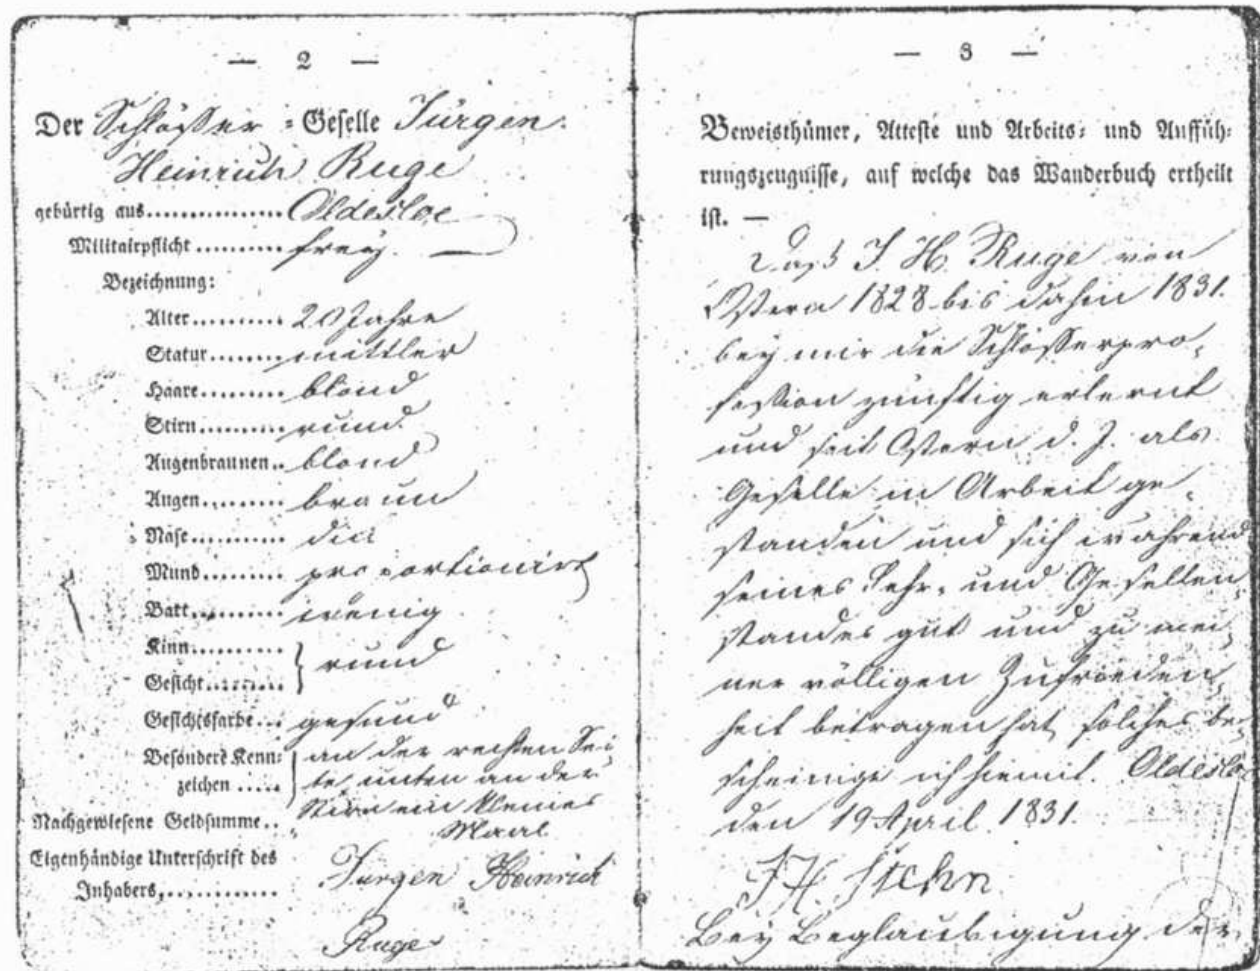 — 2 —
Der Schlösser-Geselle Jürgen
Heinrich Ruge
gebürtig aus................ Oldesloe
Militairpflicht .......... frey. —
Bezeichnung:
Alter.......... 20 Jahre
Statur........ mittler
Haare......... blond
Stirn.......... rund
Augenbraunen.. blond
Augen......... braun
Nase........... dick
Mund......... proportionirt
Bart.......... wenig
Kinn..........
Gesicht......... } rund
Gesichtsfarbe... gesund
Besondere Kenn- an der rechten Sei
zeichen ..... te unten an der
Stirn ein kleines
Nachgewiesene Geldsumme.. Maal
Eigenhändige Unterschrift des
Inhabers,............ Jurgen Heinrich
Ruge
— 3 —
Beweisthümer, Atteste und Arbeits- und Auffüh-
rungszeugnisse, auf welche das Wanderbuch ertheilt
ist. —
Daß J. H. Ruge von
Ostern 1828 bis dahin 1831.
bey mir die Schlösserpro-
fession zünftig erlernt
und seit Ostern d. J. als
Geselle in Arbeit ge-
standen und sich während
seines Lehr- und Gesellen
standes gut und zu mei-
ner völligen Zufrieden-
heit betragen hat, solches be-
scheinige ich hiemit. Oldesloe
den 19 April. 1831.
J H
Bey Beglaubigung der